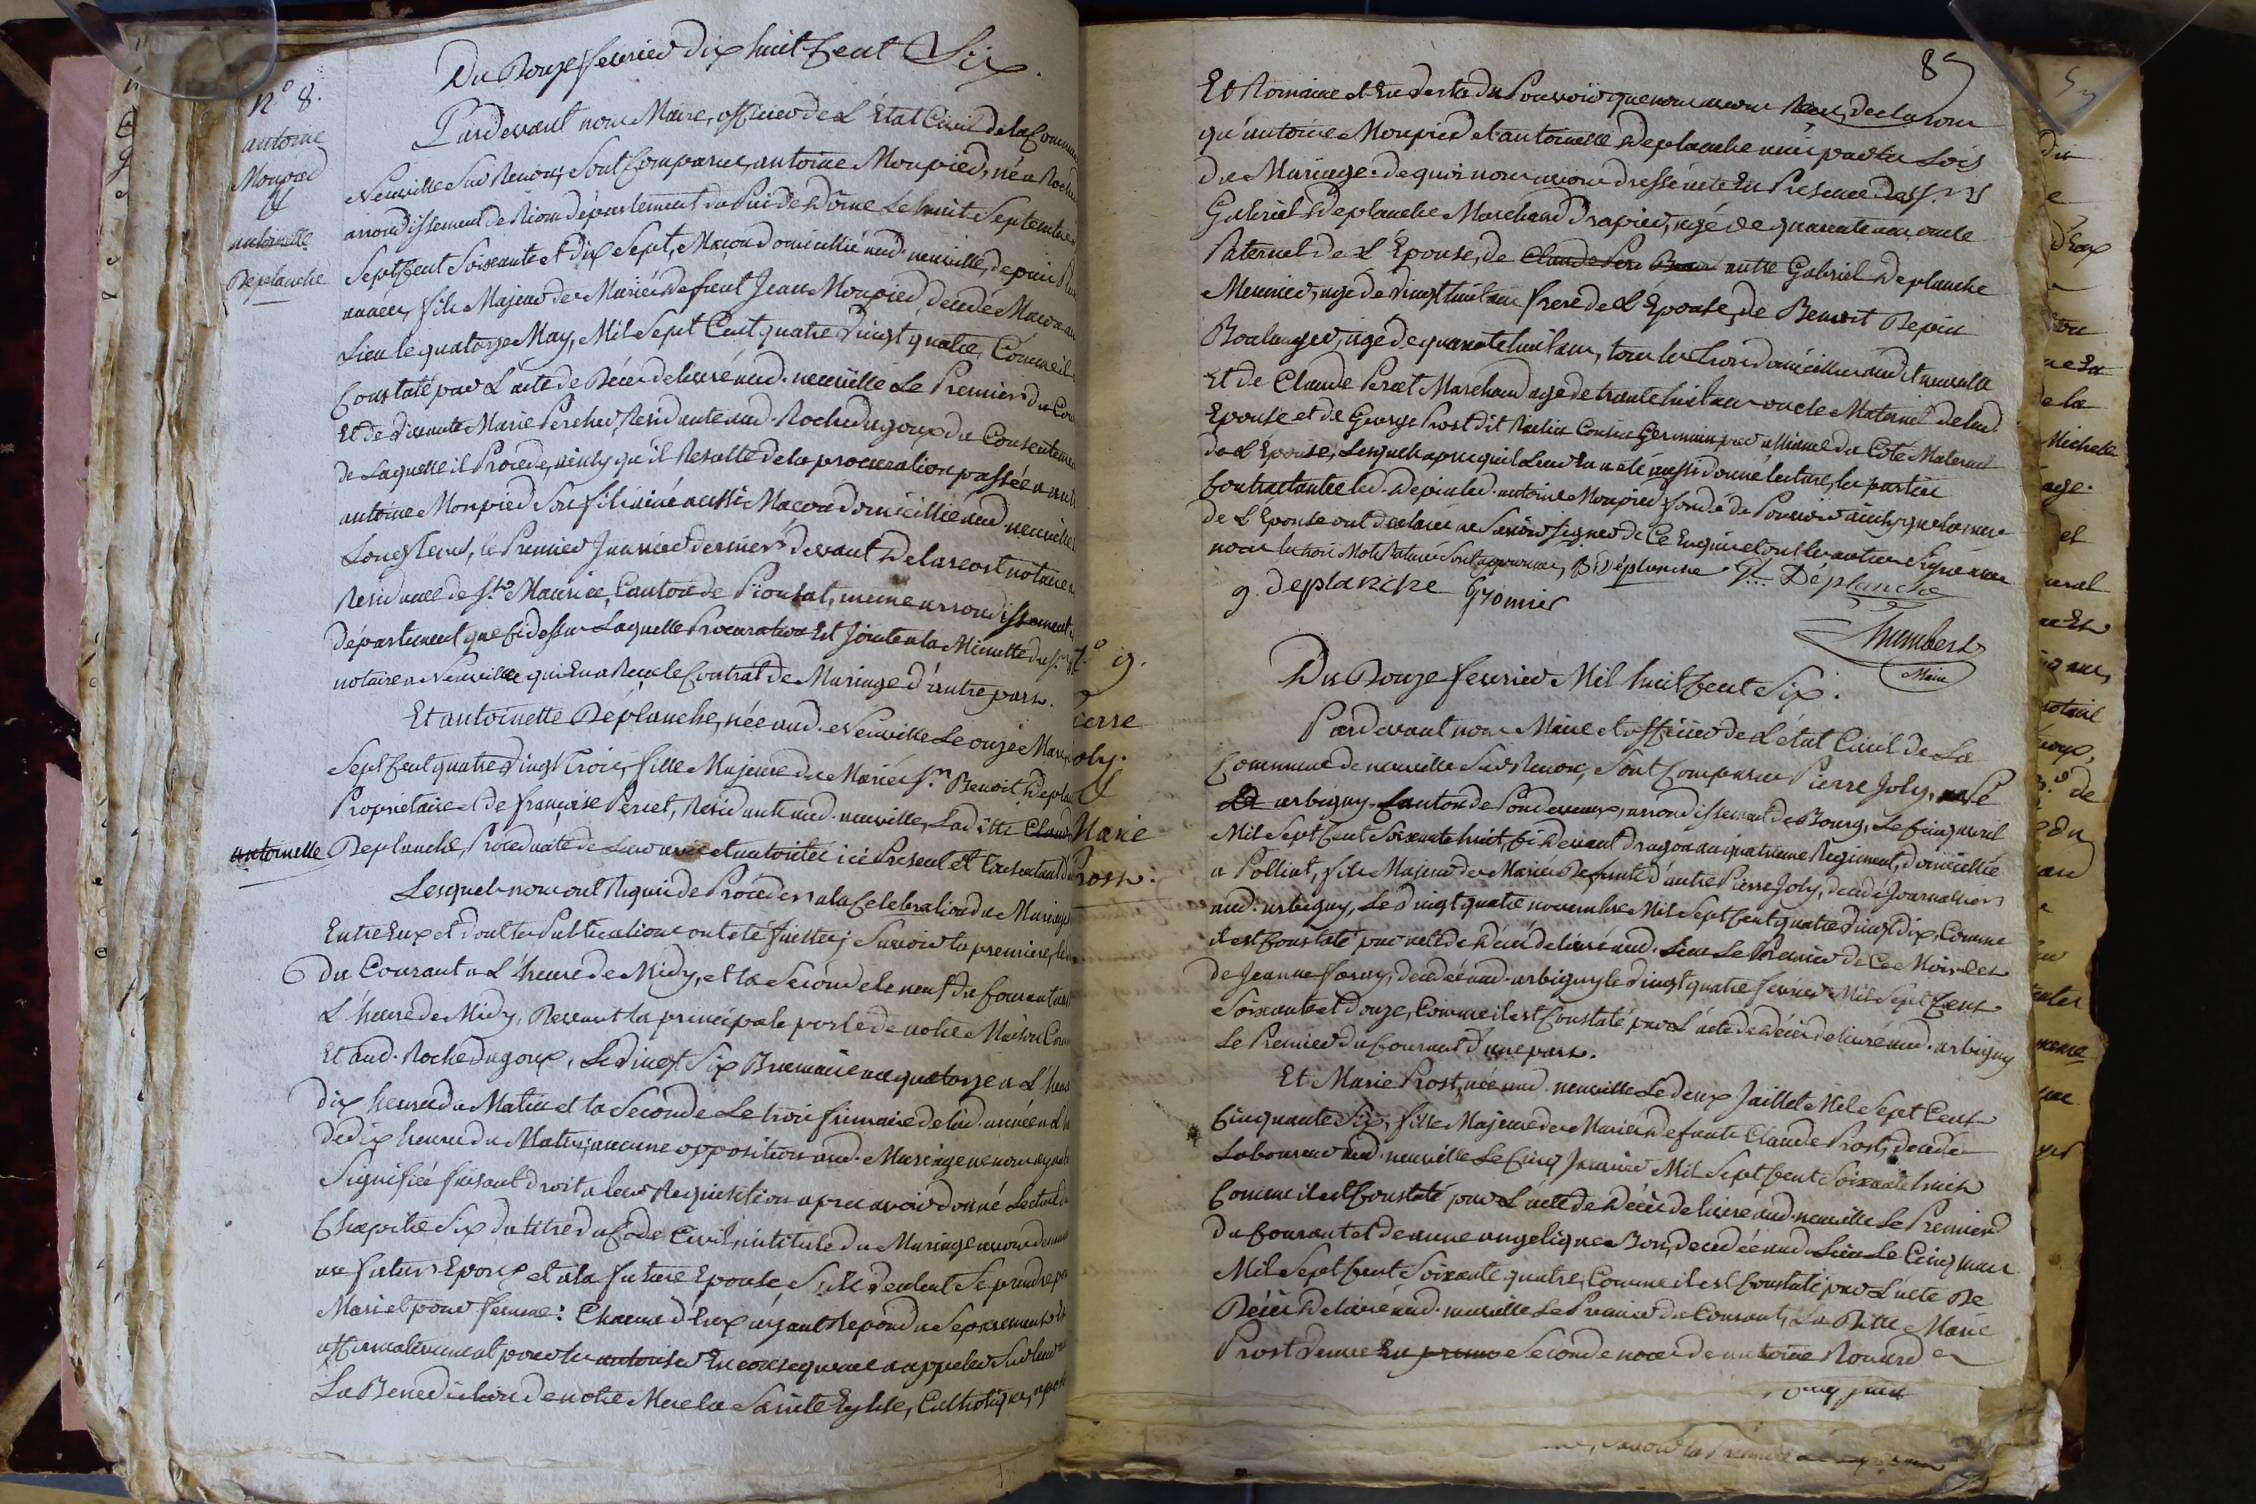 Du Douze fevrier dix huit Cent Six.
N.° 8.
antoine
Monpied
&
antoinette
Deplanche
Pardevant nous Maire, officier de L'État Civil de la Commun
Neuville Sur Renon, Sont Comparus, antoine Monpied, né a Roche
arrondissement de Riom département du Puid de Dôme Le huit Septembre
Sept Cent Soixante et dix Sept, Maçon domicillié aud. neuville, depuis
années, fils Majeur des Mariés defunt Jean Monpied, decedé Maçon au
Lieu le quatorze May, Mil Sept Cent quatre Vingt quatre, Comme il
Constaté par L'acte de Décès delivré aud. neuville Le Premier du Cou
Et de vivante Marie Perchet, Residante aud. Rochedagoux du Consenteme
de Laquelle il Procede, ainsy qu'il Resulte de la procuration passée a
antoine Monpied Son fils ainé aussi Maçon domicillié aud. neuville
Longtems, le Premier Janvier dernier devant Delarcost notaire a
Residence de S.t Maurice, Canton de Pionsat, meme arrondissement
département que Ci dessus Laquelle Procuration Est Jointe a la Minutte du S.r
notaire a Neuville qui En a Reçu le Contrat de Mariage d'autre part.
Et antoinette Deplanche, née aud. Neuville Le onze Mars
Sept Cent quatre Vingt Trois, fille Majeure des Mariés S.r Benoit Depla
Propriétaire et de françoise Perret, Residants aud. neuville, Ladite Claud
antoinette Deplanche, Procedante de Leur avis et autorité ici Present et Consentant
Lesquels nous ont Requis de Procéder a la Celebration du Mariage
Entre Eux et dont les Publications ont été faittes; Savoir la premiere, le
du Courant a L'heure de Midy, et la Seconde le neuf du Courant a
L'heure de Midy, Devant la principale porte de notre Maison Com
Et aud. Rochedagoux, Le Vingt Six Brumaire an quatorze a L'heure
dix heures du Matin et la Seconde Le trois frimaire de lad. année a L'h
de dix heures du Matin; aucune opposition aud. Mariage ne nous ayant
Signifiée faisant droit a leur Requisition apres avoir donné Lecture du
Chapitre Six du titre du Code Civil, intitulé du Mariage avons demandé
au futur Epoux et a la future Epouse, S'ils Veulent Se prendre pour
Mari et pour femme: Chacun d'Eux ayant Repondu Separement et
affirmativement pour les autoriser En consequence a appeler Sur leur
La Benediction de notre Mere la Sainte Eglise, Catholique, aposto
85
Et Romaine et En Vertu du Pouvoir que nous avons Reçu, declarons
qu'antoine Monpied et antoinette Deplanche unis par les Lois
du Mariage. de quoi nous avons dressé acte En Presence des S.rs
Gabriel Deplanche Marchand Drapier, agé de quarante ans oncle
Paternel de L'Épouse, de Claude Pere autre Gabriel Deplanche
Meunier, agé de Vingt huit ans frere de L'Épouse, de Benoit Depin
Boulanger, agé de quarante huit ans, tous les Trois domicilliés audit neuville
Et de Claude Perret Marchand agé de trante huit ans oncle Maternel de lad.
Epouse et de George Prost dit Ratier Cousin Germain par alliance du Coté Maternel
de L'Épouse, Lesquels apres qu'il Leur En a été aussi donné lecture, les parties
Contractantes led. Depin led. antoine Monpied fondé de Pouvoir ainsy que la mere
de L'Épouse ont declaré ne Savoir Signer de Ce Enquis et ont les autres Signé avec
nous les trois Mots Raturés Sont approuvés, B. Déplanche G.l Déplanche
g. deplanche Gromier
Humbert
Maire
N.° 9.
Pierre
Joly.
&
Marie
Prost.
Du Douze fevrier Mil huit Cent Six.
Pardevant nous Maire et officier de L'état Civil de La
Commune de neuville Sur Renon, Sont Comparus Pierre Joly, né
a arbigny Canton de Pondevaux, arrondissement de Bourg, Le Cinq avril
Mil Sept Cent Soixante huit, Ci devant dragon au quatrieme Regiment, domicillié
a Polliat, fils Majeur des Mariés Defunts d'autre Pierre Joly, decedé Journallier
aud. arbigny, Le Vingt quatre novembre Mil Sept Cent quatre Vingt Dix, Comme
il est Constaté par acte de Décès delivré aud. Lieu Le Premier de Ce Mois et
de Jeanne foray, decedée aud. arbigny le Vingt quatre fevrier Mil Sept Cent
Soixante et Douze, Comme il est Constaté par L'acte de Décès delivré aud. arbigny
Le Premier du Courant d'une part.
Et Marie Prost, née aud. neuville Le deux Juillet Mil Sept Cent
Cinquante Six, fille Majeure des Mariés Defunts Claude Prost, decedé
Laboureur aud. neuville Le Cinq Janvier Mil Sept Cent Soixante huit
Comme il est Constaté par L'acte de Décès delivré aud. neuville Le Premier
du Courant et de anne angelique Bon, decedée aud. Lieu Le Cinq mars
Mil Sept Cent Soixante quatre, Comme il est Constaté par L'acte de
Décès delivré aud. neuville Le Premier du Courant, La Ditte Marie
Prost Veuve En premi Seconde noces de antoine Rouard